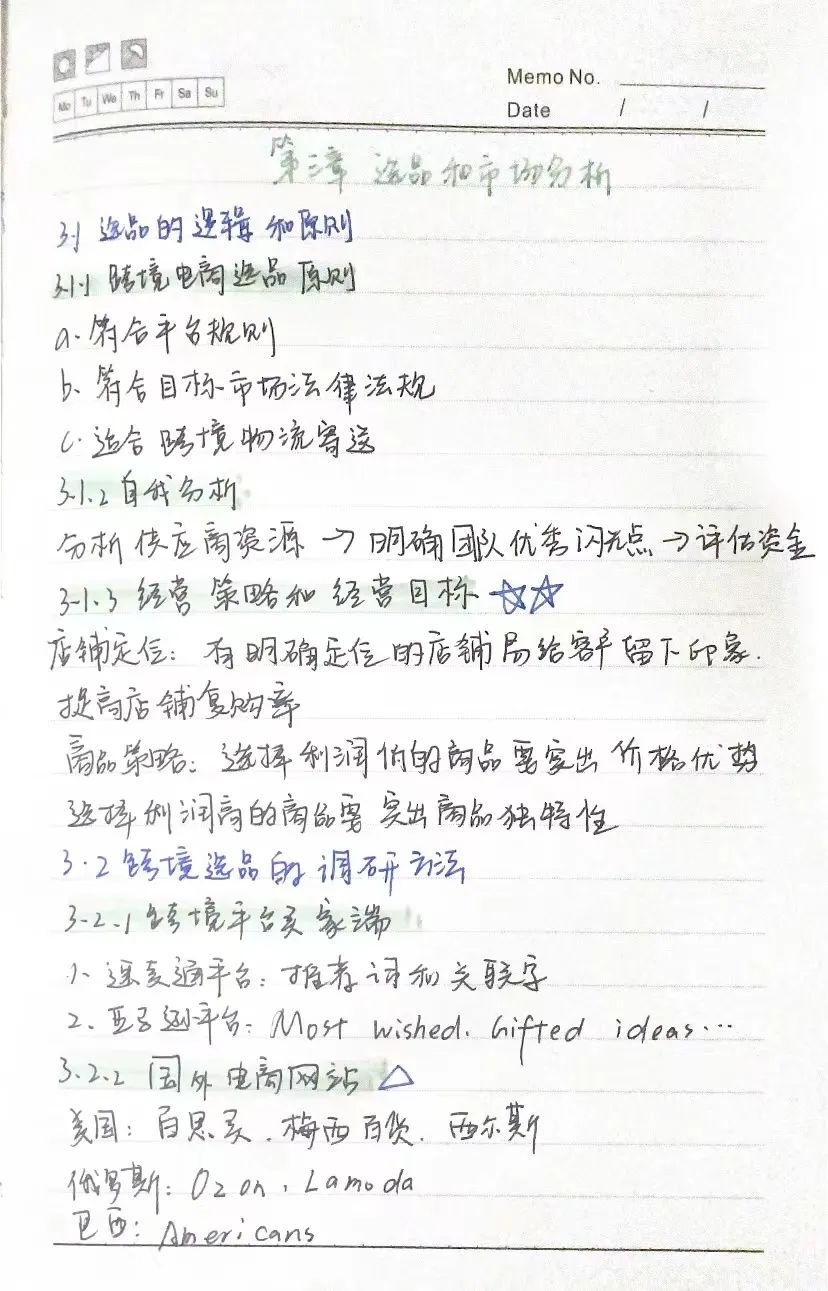 Memo No.
Mo Tu We Th Fr Sa Su
Date / /
第三章 选品和市场分析
3.1 选品的逻辑和原则
3.1.1 跨境电商选品原则
a. 符合平台规则
b. 符合目标市场法律法规
c. 适合跨境物流寄送
3.1.2 自我分析
分析供应商资源 → 明确团队优秀闪光点 → 评估资金
3.1.3 经营策略和经营目标 ☆☆
店铺定位: 有明确定位的店铺易给客户留下印象.
提高店铺复购率
商品策略: 选择利润低的商品要突出价格优势
选择利润高的商品要突出商品独特性
3.2 跨境选品的调研方法
3.2.1 跨境平台买家端
1、速卖通平台: 推荐词和关联字
2、亚马逊平台: Most wished. Gifted ideas…
3.2.2 国外电商网站 △
美国: 百思买. 梅西百货. 西尔斯
俄罗斯: Ozon、Lamoda
巴西: Americans